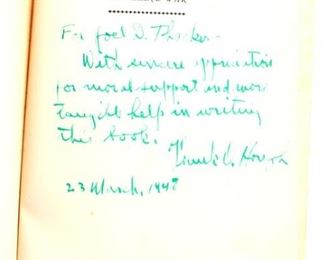 For Joel D. Thacker –
With sincere appreciation
for moral support and more
tangible help in writing
this book.
Frank O. Hough
23 March, 1947